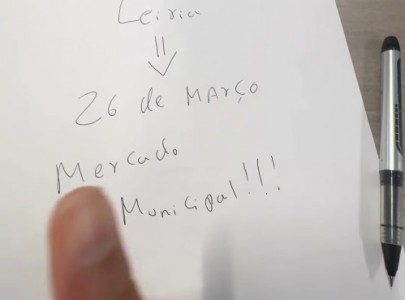 Leiria
26 de MARÇO
Mercado
Municipal!!!